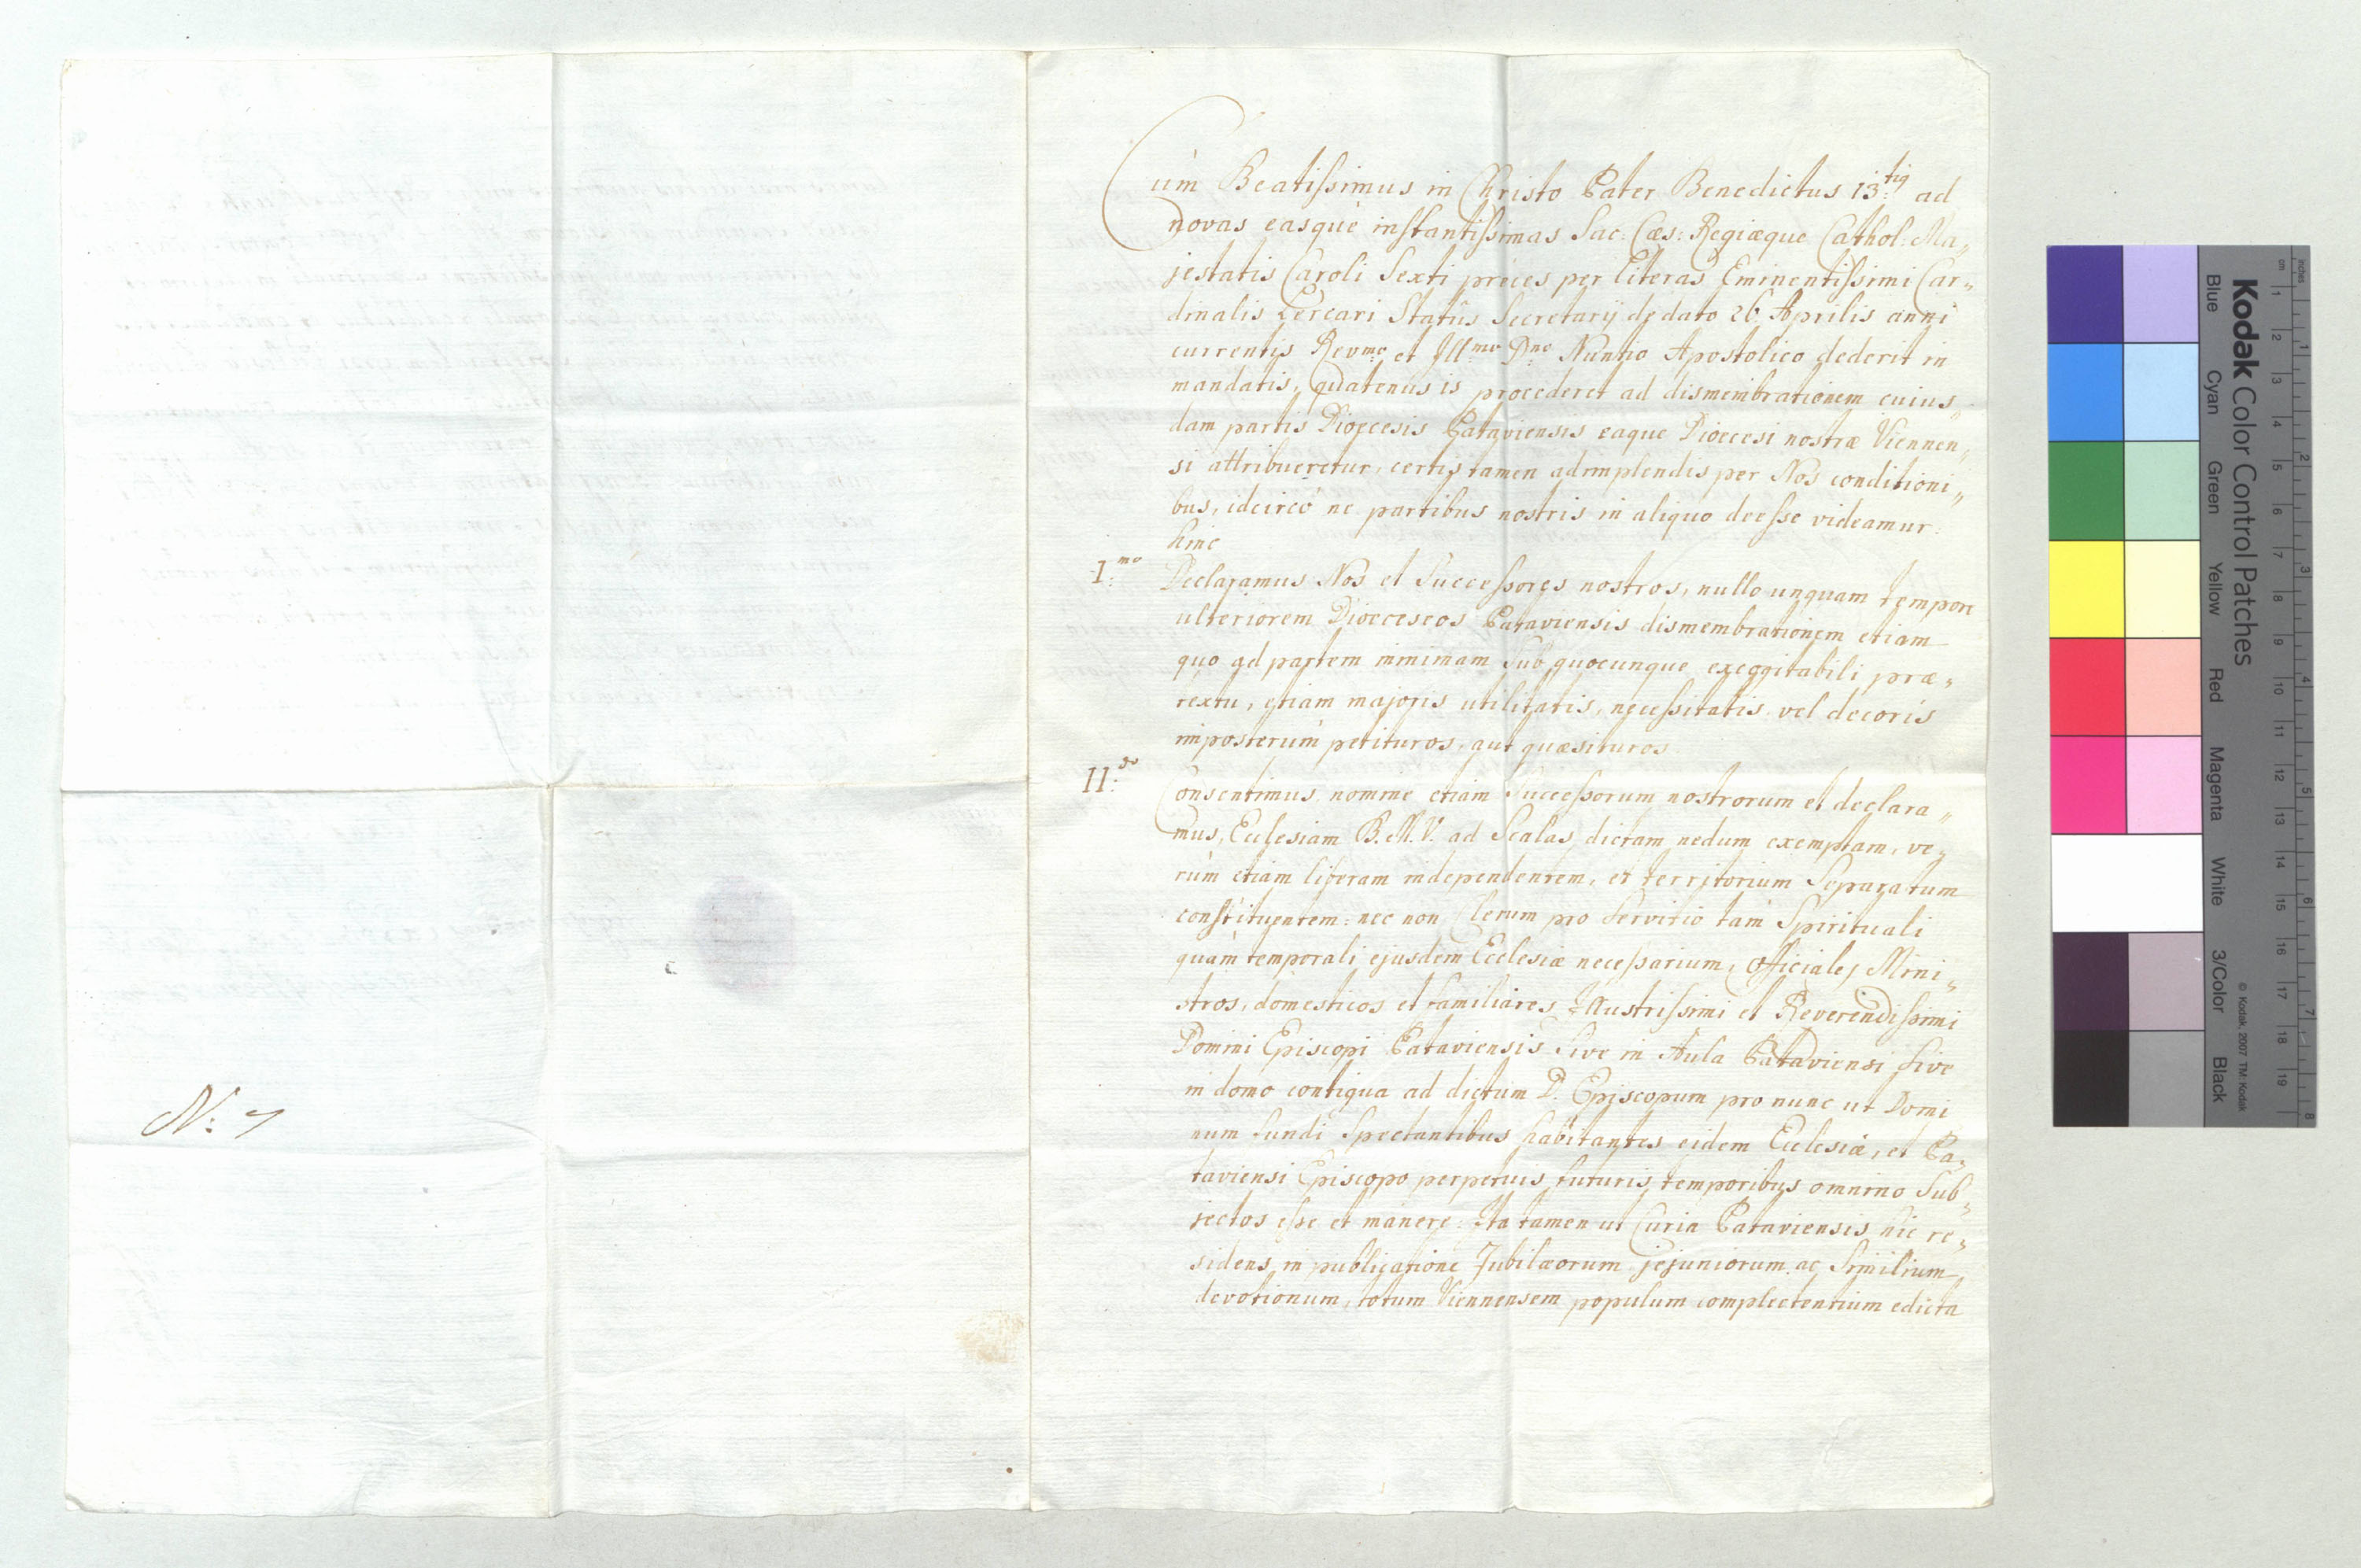 N: 7
Cùm Beatissimus in Christo Pater Benedictus 13tiq ad
novas easquè instantissimas Sac: Cæs: Regiæque Cathol: Ma„
jestatis Caroli Sexti preces per literas Eminentissimi Car„
dinalis Lercari Statûs Secretarij de dato 26 Aprilis anni
currentis Revmo et Illmo Dno Nuntio Apostolico dederit in
mandatis, quatenus is procederet ad dismembrationem cuius„
dam partis Dioecesis Pataviensis eaque Dioecesi nostræ Viennen„
si attribueretur, certis tamen adimplendis per Nos conditioni„
bus, idcircò ne partibus nostris in aliquo deesse videamur.
hinc
I:mo Declaramus Nos et Successores nostros, nullo unquam tempore
ulteriorem Dioeceseos Pataviensis dismembrationem etiam
quo ad partem minimam sub quocunque excogitabili præ„
textu, etiam majoris utilitatis, necessitatis vel decoris
imposterùm petituros, aut quæsituros.
II:do Consentimus nomine etiam Successorum nostrorum et declara„
mus, Ecclesiam B.M.V. ad Scalas dictam nedum exemptam, ve„
rùm etiam liberam independentem, et territorium Separatum
constituentem: nec non Clerum pro servitio tam Spirituali
quàm temporali ejusdem Ecclesiæ necessarium, Officiales Mini„
stros, domesticos et familiares Illustrissimi et Reverendissimi
Domini Episcopi Pataviensis Sive in Aula Pataviensi sive
in domo contigua ad dictum D. Episcopum pro nunc ut Domi
num fundi Spectantibus habitantes eidem Ecclesiæ, et Pa„
taviensi Episcopo perpetuis futuris temporibus omnino Sub„
jectos esse et manere: Ita tamen ut Curia Pataviensis hic re„
sidens in publicatione Jubilæorum jejuniorum ac Similium
devotionum, totum Viennensem populum complectentium edicta
Kodak Color Control Patches
Blue Cyan Green Yellow Red Magenta White 3/Color Black
© Kodak, 2007 TM: Kodak
cm 1 2 3 4 5 6 7 8 9 10 11 12 13 14 15 16 17 18 19
inches 1 2 3 4 5 6 7 8